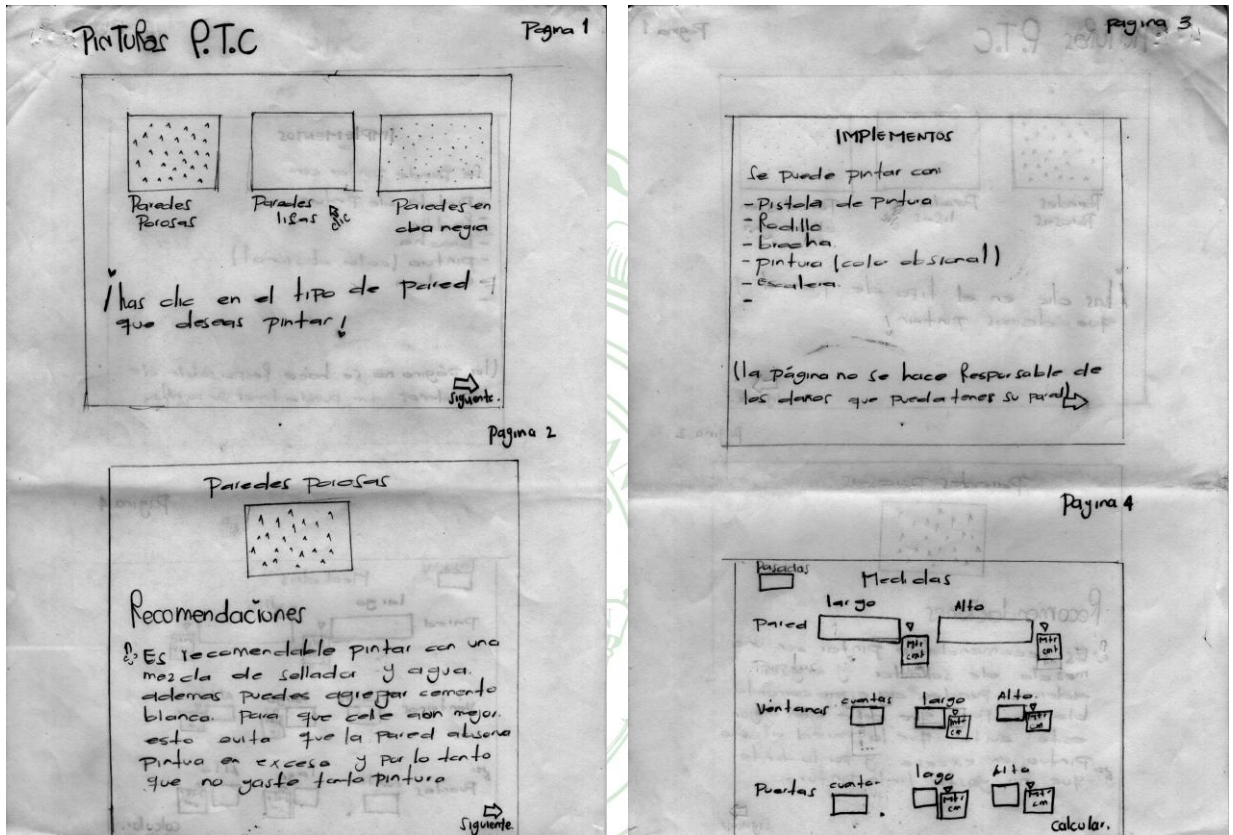 PINTURAS P.T.C
Pagina 1
Paredes
Porosas
Paredes
lisas
clic
Paredes en
oba negra
¡has clic en el tipo de pared
que deseas pintar!
Siguiente.
Pagina 2
Paredes Porosas
Recomendaciones
Es recomendable pintar con una
mezcla de sellador y agua.
ademas puedes agregar cemento
blanco. Para que selle aun mejor.
esto evita que la pared absorva
Pintura en exceso y por lo tanto
que no gaste tanta pintura
Siguiente.
Pagina 3
IMPLEMENTOS
Se puede pintar con:
- Pistola de Pintura
- Rodillo
- brocha.
- pintura (colo obsional)
- Escalera.
-
(la página no se hace Responsable de
los daños que pueda tener su pared)
Pagina 4
Pasadas
Medidas
largo
Alto
Pared
Mtr
cent
Mtr
cent
Ventanas
cuantas
largo
Alto.
Mtr
cm
Mtr
cm
Puertas
cuantas
lago
Alto
Mtr
cm
Mtr
cm
calcular.